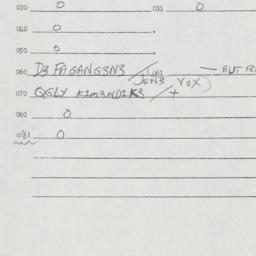 030 0 031 0
040 0
050 0
060 D3 FAGANG3N3 / — BUT
JEN3 VOX)
070 QGLY K1M3ND1K3 / +
080 0
081 0